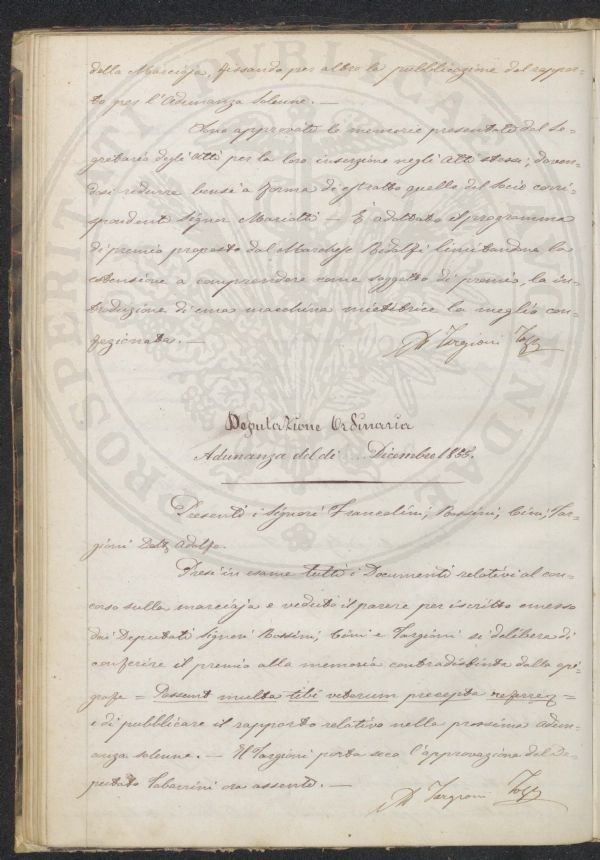 della Marciaja, fissando per altro la pubblicazione del rappor-
to per l'Adunanza Solenne. —
Sono approvate le memorie presentate dal Se-
gretario degli Atti per la loro inserzione negli Atti stessi; doven-
dosi ridurre bensì a forma di estratto quella del Socio corri-
spondent Signor Mariotti — È adottato il programma
di premio proposto dal Marchese Ridolfi limitandone la
estensione a comprendere come soggetto di premio, la in-
troduzione di una macchina mietitrice la meglio con-
fezionata. —
Ad Targioni Tozz
Deputazione Ordinaria
Adunanza del dì ... Dicembre 1855.
Presenti i Signori Francolini, Rossini, Cini, Tar-
gioni Tozz. Adolfo.
Presi in esame tutti i Documenti relativi al con-
corso sulla marciaja e veduto il parere per iscritto emesso
dai Deputati Signori Rossini, Cini e Targioni si delibera di
conferire il premio alla memoria contradistinta dalla epi-
grafe = Possunt multa tibi veterum precepta referre =
e di pubblicare il rapporto relativo nella prossima Adun-
anza solenne. — Il Targioni porta seco l'approvazione del De-
putato Taberrini ora assente. —
Ad Targioni Tozz
PROSPERITATI PUBLICAE AUGENDAE